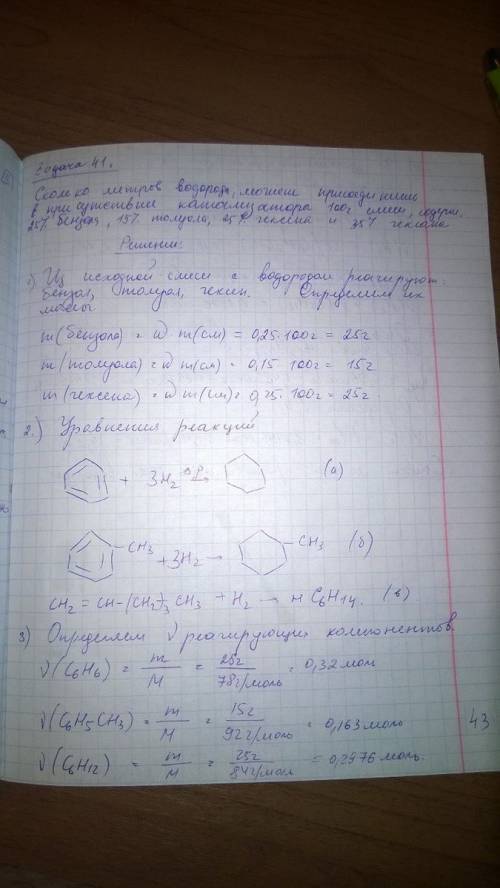 Задача 41.
Сколько литров водорода, может присоединить
в присутствие катализатора 100г смеси, содерж.
25% бензола, 15% толуола, 25% гексена и 35% гексана
Решение:
1) Из исходной смеси с водородом реагируют:
бензол, толуол, гексен. Определим их
массы:
m(бензола) = ω m(см) = 0,25·100г = 25г
m(толуола) = ω m(см) = 0,15 100г = 15г
m(гексена) = ω m(см) = 0,25·100г = 25г
2.) Уравнения реакций
+ 3H2 → (а)
CH3 + 3H2 → CH3 (б)
CH2 = CH-(CH2)3 CH3 + H2 → н C6H14. (в)
3) Определяем ν реагирующих компонентов.
ν(C6H6) = m/M = 25г/78г/моль = 0,32 моль
ν(C6H5CH3) = m/M = 15г/92г/моль = 0,163 моль
43
ν(C6H12) = m/M = 25г/84г/моль = 0,2976 моль.